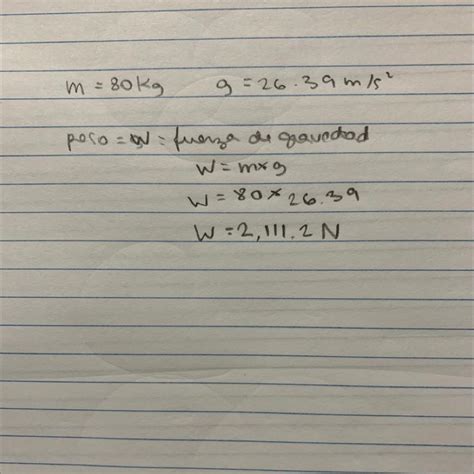 m = 80kg g = 26.39 m/s²
peso = W = fuerza de gravedad
W = m×g
W = 80 × 26.39
W = 2,111.2 N